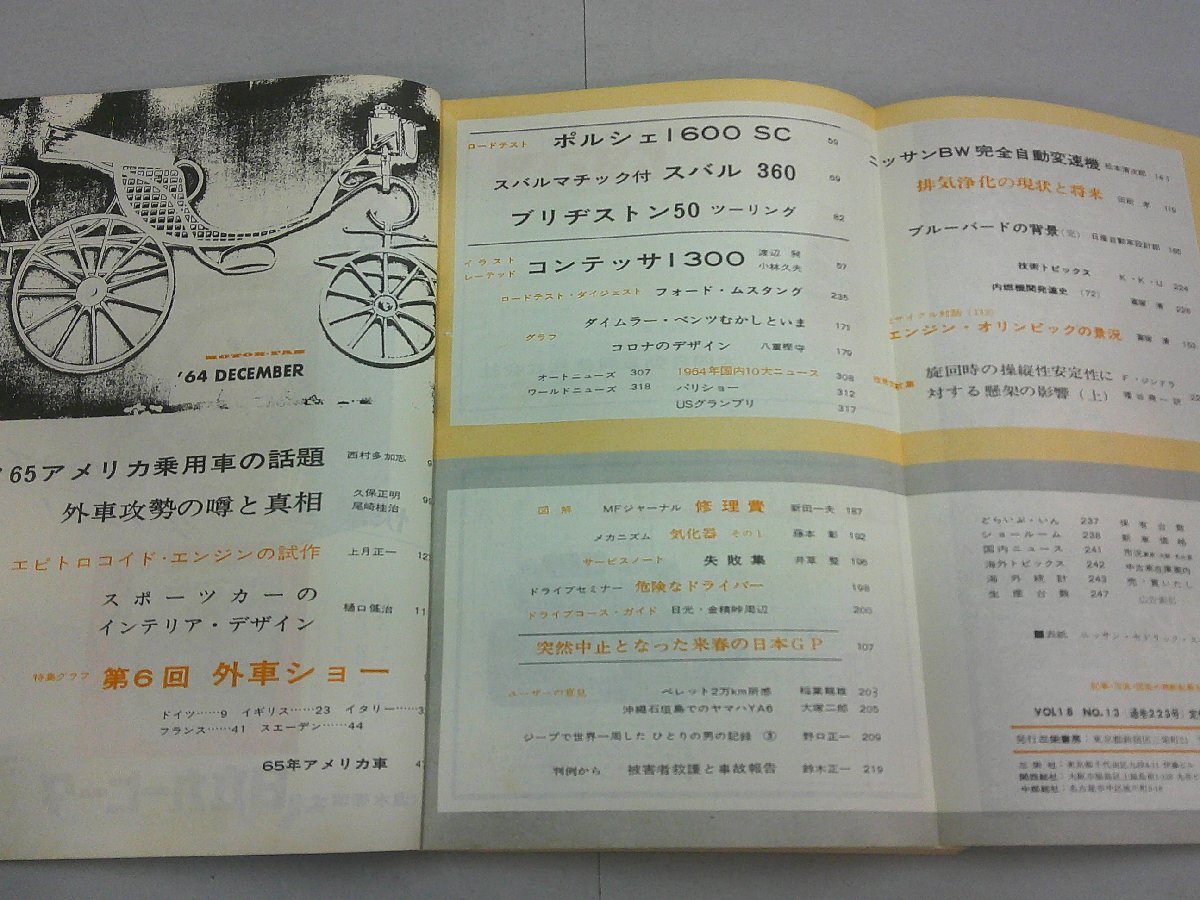 MOTOR-FAN
'64 DECEMBER
'65アメリカ乗用車の話題 西村多加志 9
外車攻勢の噂と真相 久保正明 尾崎桂治 9
エピトロコイド・エンジンの試作 上月正一 12
スポーツカーの
インテリア・デザイン 樋口健治 11
特集グラフ 第6回 外車ショー
ドイツ……9 イギリス……23 イタリー……3
フランス……41 スエーデン……44
65年アメリカ車 4
ロードテスト ポルシェ1600 SC 59
スバルマチック付 スバル 360 69
ブリヂストン50 ツーリング 82
イラストレーテッド コンテッサ1300 渡辺 小林久夫 57
ロードテスト・ダイジェスト フォード・ムスタング 235
グラフ ダイムラー・ベンツむかしといま 171
コロナのデザイン 八重樫守 179
オートニューズ 307 1964年国内10大ニュース 308
ワールドニューズ 318 パリショー 312
USグランプリ 317
図解 MFジャーナル 修理費 新田一夫 187
メカニズム 気化器 その1 藤本 彰 192
サービスノート 失敗集 井草 整 196
ドライブセミナー 危険なドライバー 198
ドライブコース・ガイド 日光・金精峠周辺 200
突然中止となった来春の日本GP 107
ユーザーの意見 ベレット2万km所感 稲葉龍雄
沖縄石垣島でのヤマハYA6 大塚二郎 205
ジープで世界一周した ひとりの男の記録 ③ 野口正一 209
判例から 被害者救護と事故報告 鈴木正一 219
ニッサンBW完全自動変速機 松本清次郎
排気浄化の現状と将来 119
ブルーバードの背景(完) 日産自動車設計部
技術トピックス K・K・U 224
内燃機関発達史 (72) 富塚 清 226
エンジン・オリンピックの景況 富塚 清
旋回時の操縦性安定性に
対する懸架の影響(上)
どらいぶ・いん 237 保有台数
ショールーム 238 新車価格
国内ニュース 241 市況
海外トピックス 242 中古車在庫案内
海外統計 243 売・買いたし
生産台数 247 広告索引
■表紙 ニッサン・セドリック・ス
VOL18 NO.13
発行三栄書房:東京都新宿区三栄町
三栄社:東京都千代田区九段
関西総社:大阪市福島区上福島
中部総社:名古屋市中区